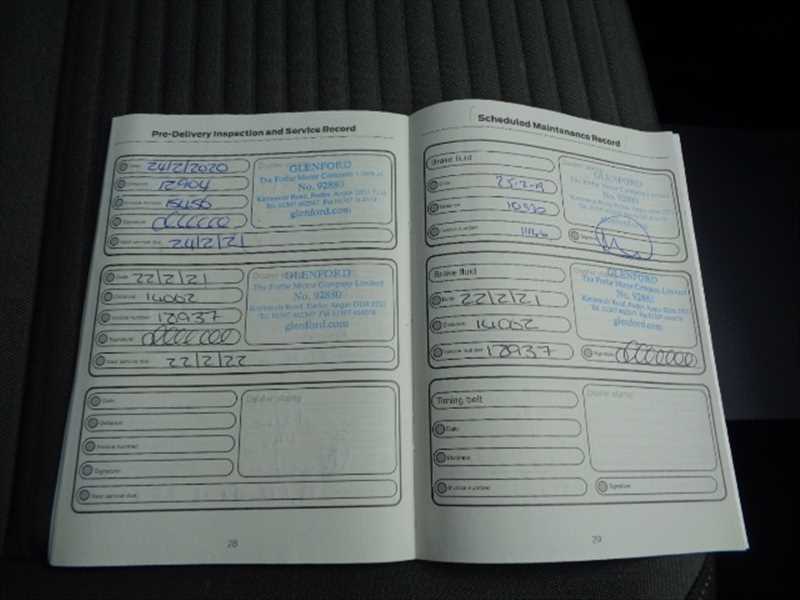 Pre-Delivery Inspection and Service Record
Date 24/2/2020
Distance 12904
Invoice number 15456
Signature
Next service due 24/2/21
Dealer stamp
GLENFORD
The Forfar Motor Company Limited
No. 92880
glenford.com
Date 22/2/21
Distance 14062
Invoice number 17937
Signature
Next service due 22/2/22
Dealer stamp
GLENFORD
The Forfar Motor Company Limited
No. 92880
glenford.com
Date
Distance
Invoice number
Signature
Next service due
Dealer stamp
28
Scheduled Maintenance Record
Brake fluid
Date 25-2-19
Distance
Invoice number
Signature
GLENFORD
The Forfar Motor Company Limited
No. 92880
glenford.com
Brake fluid
Date 22/2/21
Distance 14062
Invoice number 17937
Signature
GLENFORD
The Forfar Motor Company Limited
No. 92880
glenford.com
Timing belt
Date
Distance
Invoice number
Signature
Dealer stamp
29